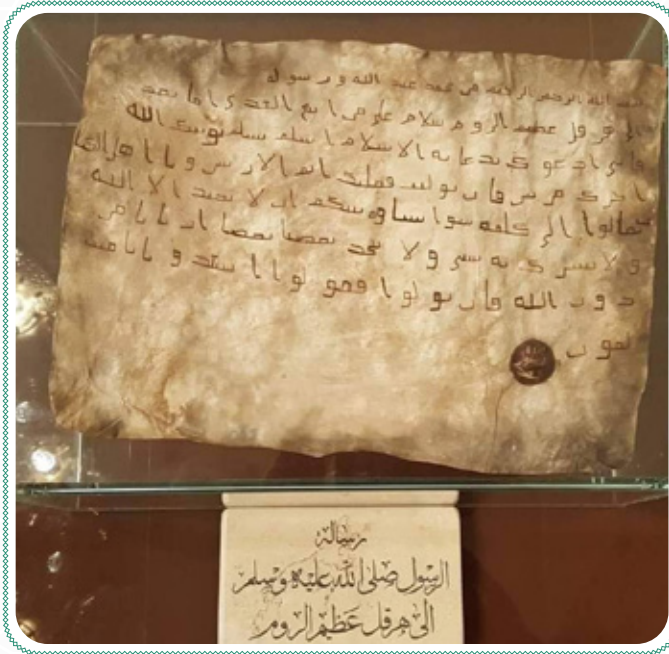 بسم الله الرحمن الرحيم من محمد عبد الله ورسوله
الى هرقل عظيم الروم سلام على من اتبع الهدى اما بعد
فاني ادعوك بدعاية الاسلام اسلم تسلم يوتك الله
اجرك مرتين فان توليت فعليك اثم الاريسين ويا اهل الكتا
تعالوا الى كلمة سوا بيننا وبينكم ان لا نعبد الا الله
ولا نشرك به شي ولا يتخذ بعضنا بعضا اربابا من
دون الله فان تولوا فقولوا اشهدوا بانا مس
لمون
رسالة
الرسول صلى الله عليه وسلم
الى هرقل عظيم الروم